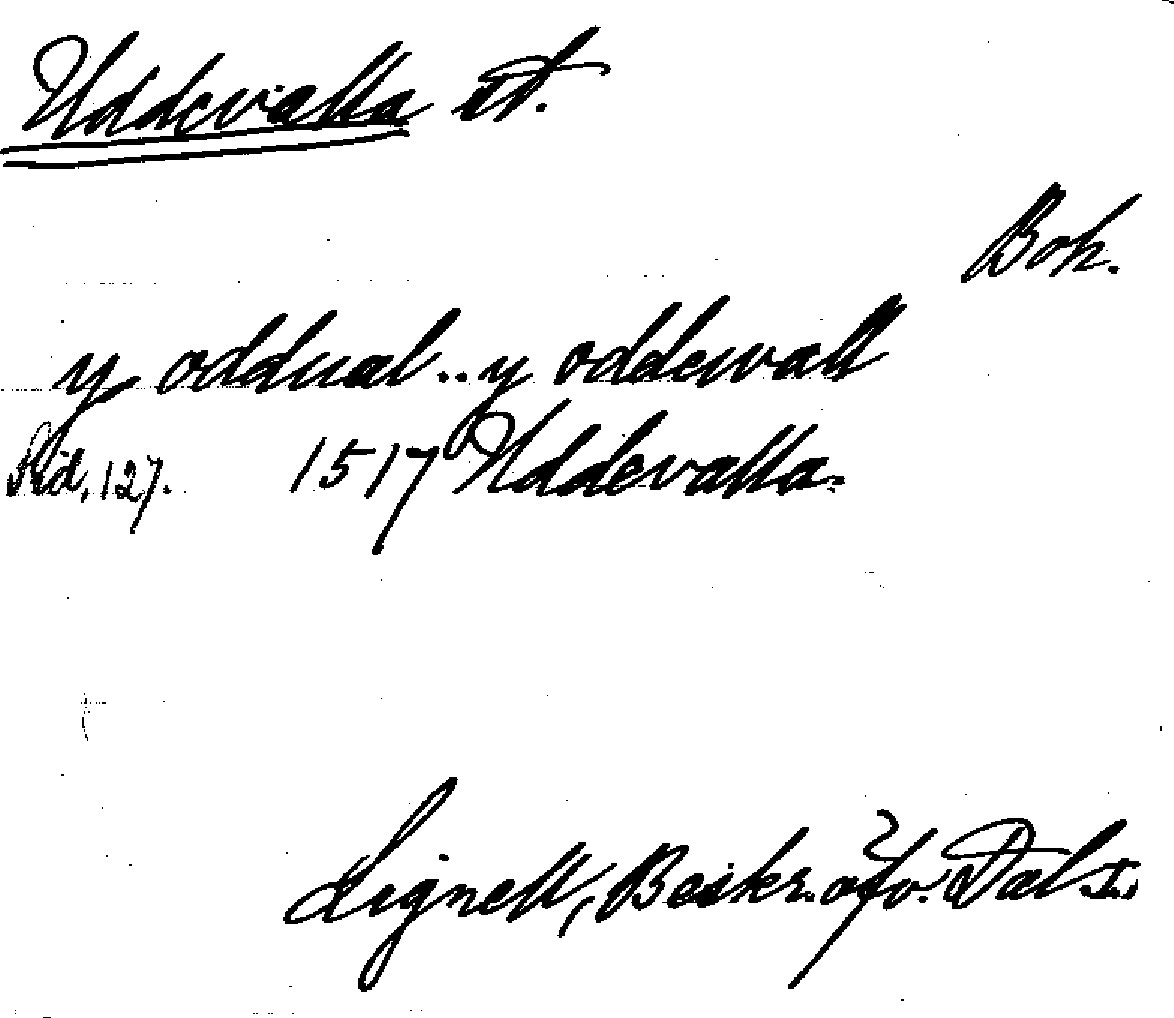 Uddevalla st.
Boh.
y oddual .. y oddewall
Sid. 127. 1517 Uddevalla.
Lignell, Beskr. öfv. Dal I.